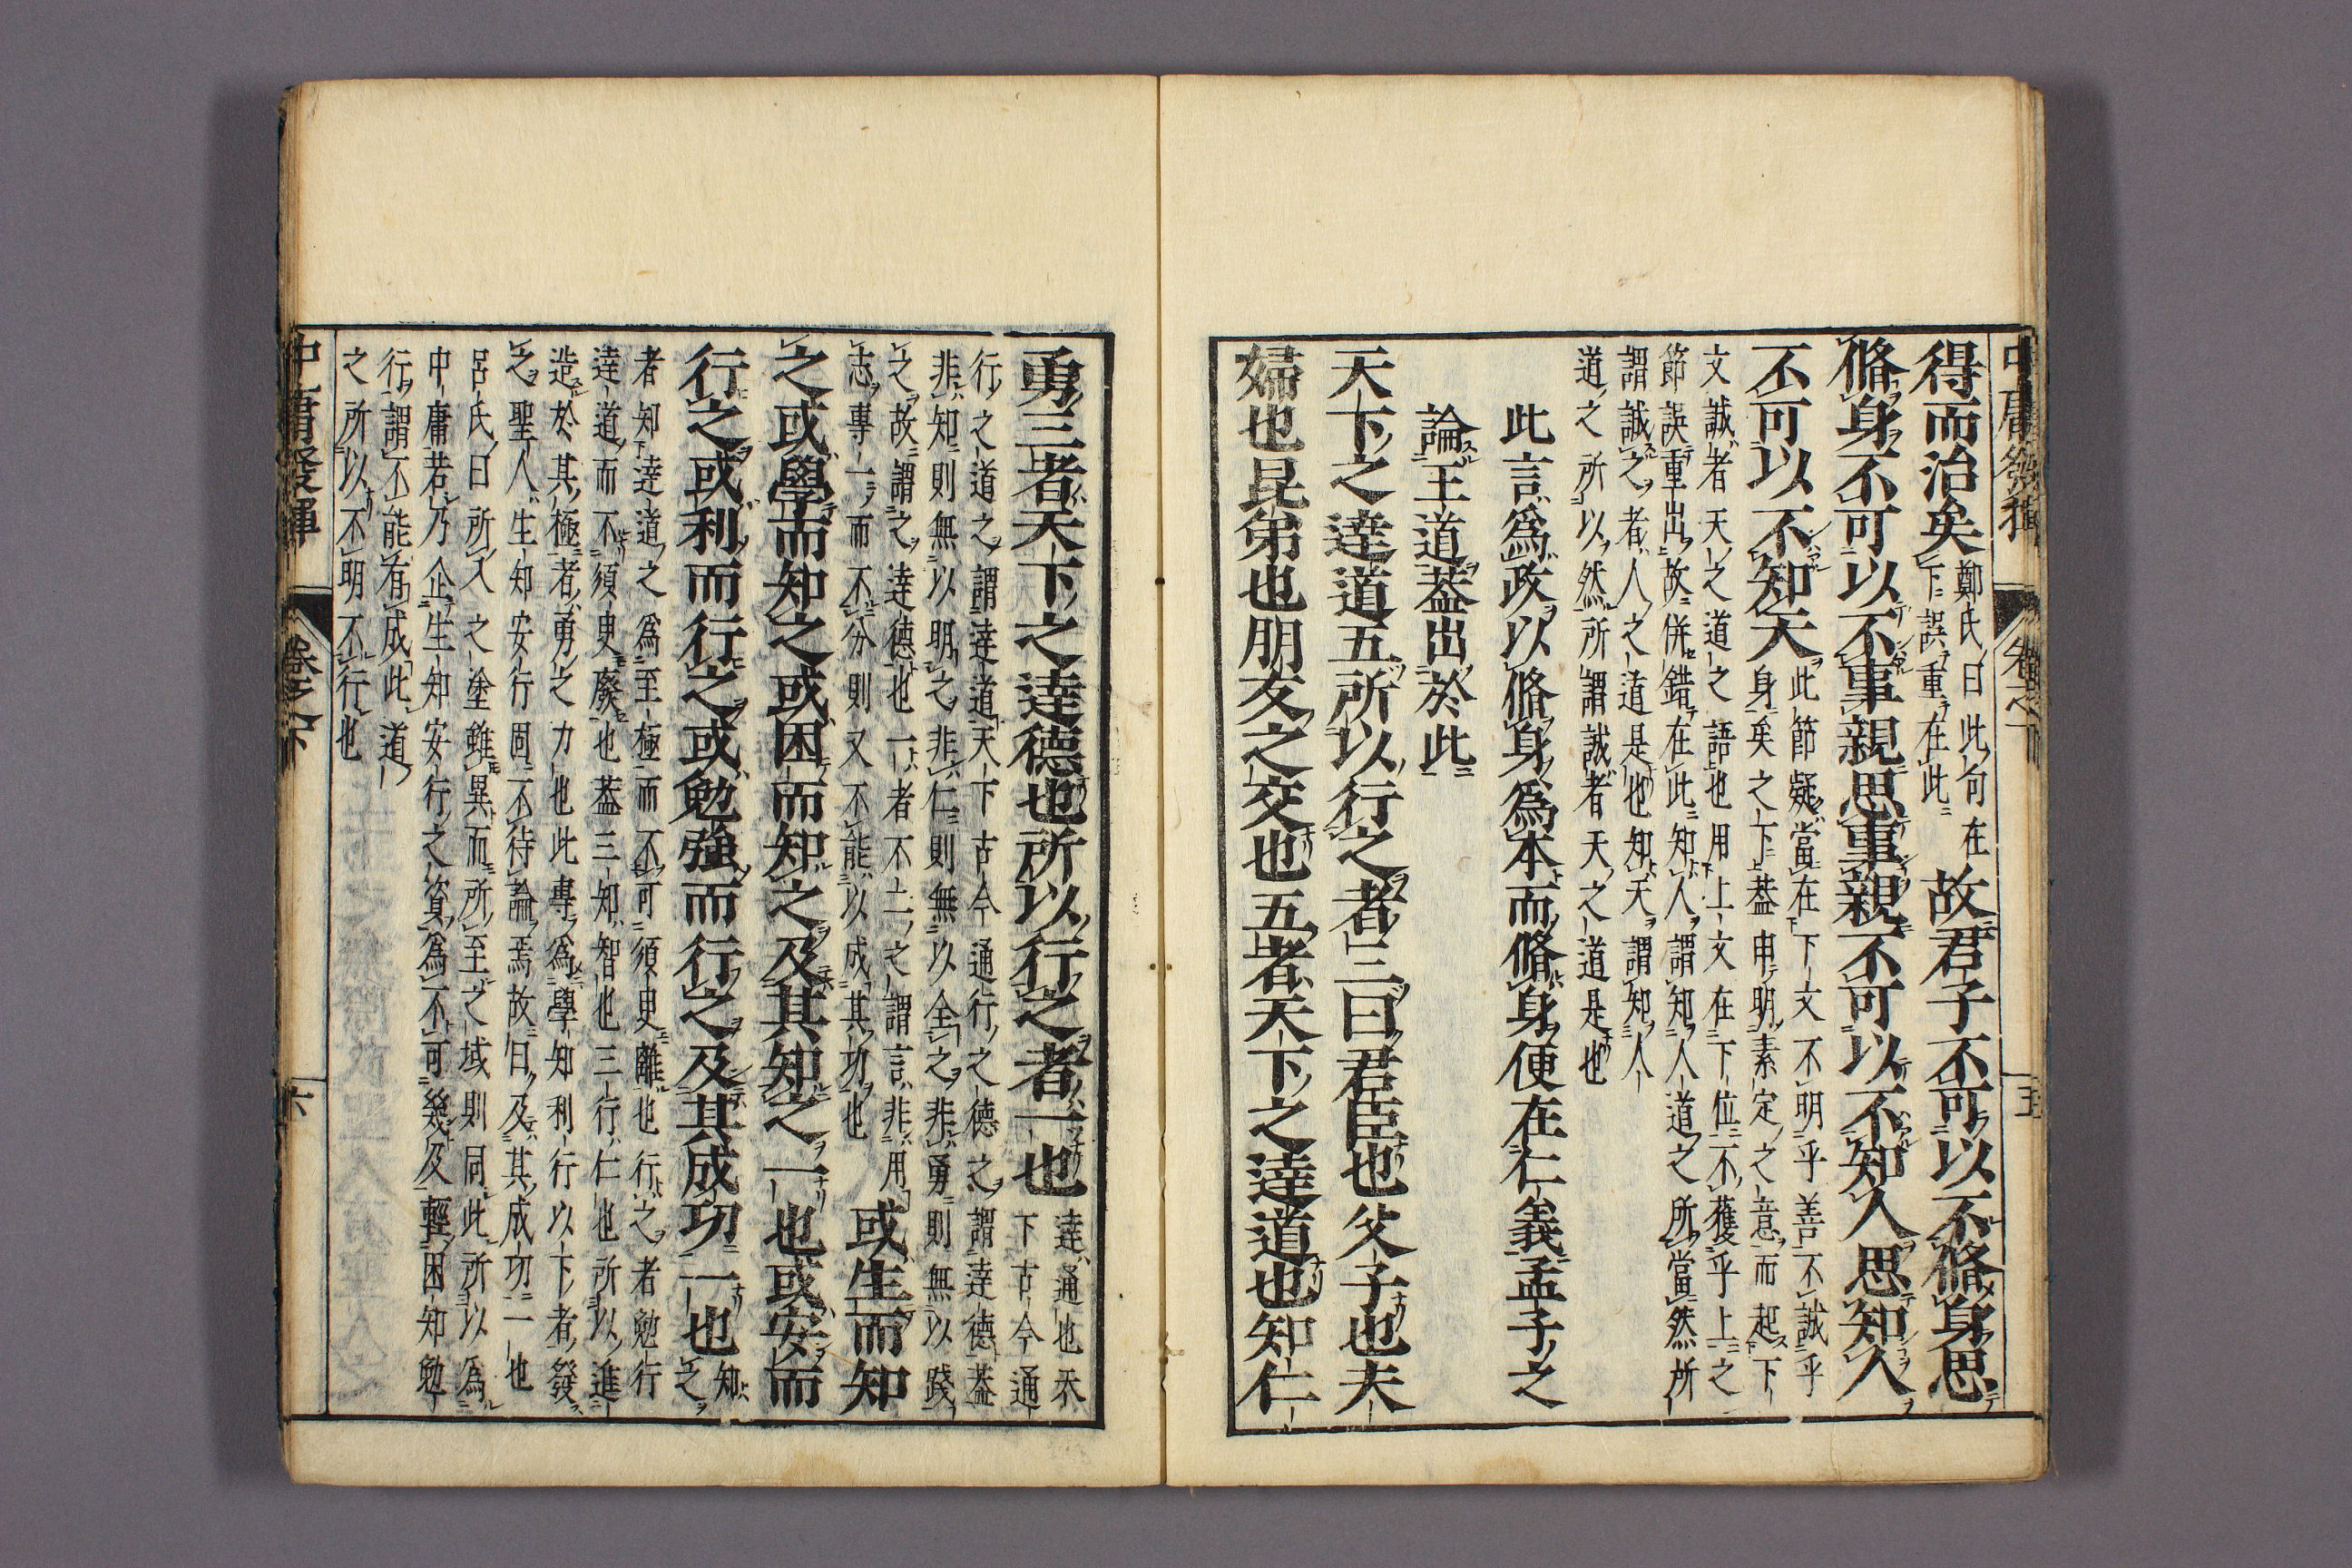 中庸發揮 卷之下 五
得而治矣
鄭氏曰此句在
下誤重在此
故君子不可以不脩身思
脩身不可以不事親思事親不可以不知人思知人
不可以不知天
此節疑當在下文不明乎善不誠乎
身矣之下蓋申明素定之意而起下
文誠者天之道之語也用上文在下位不獲乎上之
節誤重出故併錯在此知人謂知人道之所當然所
謂誠之者人之道是也知天謂知人
道之所以然所謂誠者天之道是也
此言爲政以脩身爲本而脩身便在仁義孟子之
論王道蓋出於此
天下之達道五所以行之者三曰君臣也父子也夫
婦也昆弟也朋友之交也五者天下之達道也知仁
勇三者天下之達德也所以行之者一也
達通也天
下古今通
行之道之謂達道天下古今通行之德之謂達德蓋
非知則無以明之非仁則無以全之非勇則無以踐
之故謂之達德也一者不二之謂言非用
志專一而不分則又不能以成其功也
或生而知
之或學而知之或困而知之及其知之一也或安而
行之或利而行之或勉強而行之及其成功一也
知
之
者知達道之爲至極而不可須臾離也行之者勉行
達道而不須臾廢也蓋三知智也三行仁也所以進
造於其極者勇之力也此專爲學知利行以下者發
之聖人生知安行固不待論焉故曰及其成功一也
呂氏曰所入之塗雖異而所至之域則同此所以爲
中庸若乃企生知安行之資爲不可幾及輕困知勉
行謂不能有成此道
之所以不明不行也
中庸發揮 卷之下 六